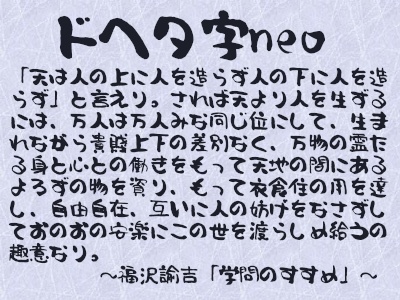 ドヘタ字neo
「天は人の上に人を造らず人の下に人を造
らず」と言えり。されば天より人を生ずる
には、万人は万人みな同じ位にして、生ま
れながら貴賎上下の差別なく、万物の霊た
る身と心との働きをもって天地の間にある
よろずの物を資り、もって衣食住の用を達
し、自由自在、互いに人の妨げをなさずし
ておのおの安楽にこの世を渡らしめ給うの
趣意なり。
～福沢諭吉「学問のすすめ」～